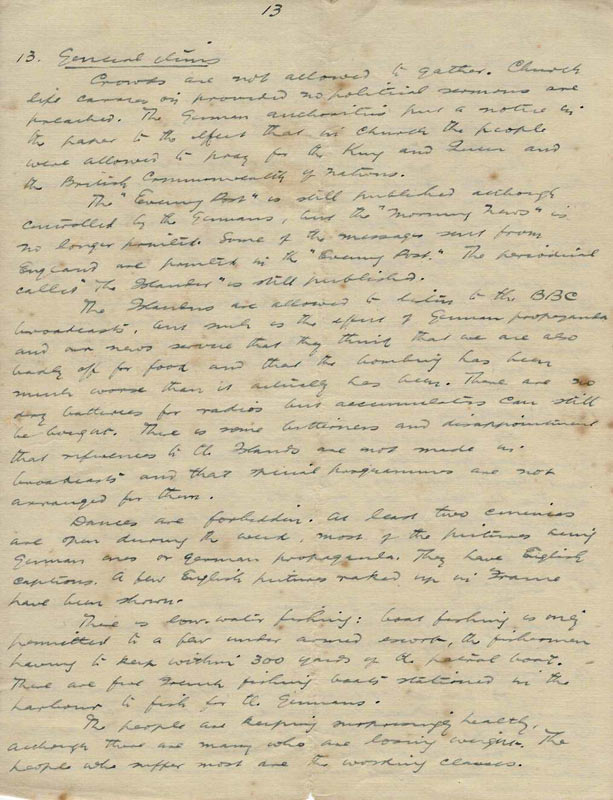 13
13. General items
Crowds are not allowed to gather. Church
life carries on provided no political sermons are
preached. The German authorities put a notice in
the paper to the effect that in Church the people
were allowed to pray for the King and Queen and
the British Commonwealth of Nations.
The "Evening Post" is still published although
controlled by the Germans, but the "Morning News" is
no longer printed. Some of the messages sent from
England are printed in the "Evening Post." The periodical
called "The Islander" is still published.
The Islanders are allowed to listen to the BBC
broadcasts, but such is the effect of German propaganda
and our news service that they think that we are also
badly off for food and that the bombing has been
much worse than it actually has been. There are no
dry batteries for radios but accumulators can still
be bought. There is some bitterness and disappointment
that references to the Islands are not made in
broadcasts and that special programmes are not
arranged for them.
Dances are forbidden. At least two cinemas
are open during the week, most of the pictures being
German ones or german propaganda. They have English
captions. A few English pictures raked up in France
have been shown.
There is low-water fishing: boat fishing is only
permitted to a few under armed escort, the fishermen
having to keep within 300 yards of the patrol boat.
There are five French fishing boats stationed in the
harbour to fish for the Germans.
The people are keeping surprisingly healthy,
although there are many who are losing weight. The
people who suffer most are the working classes.